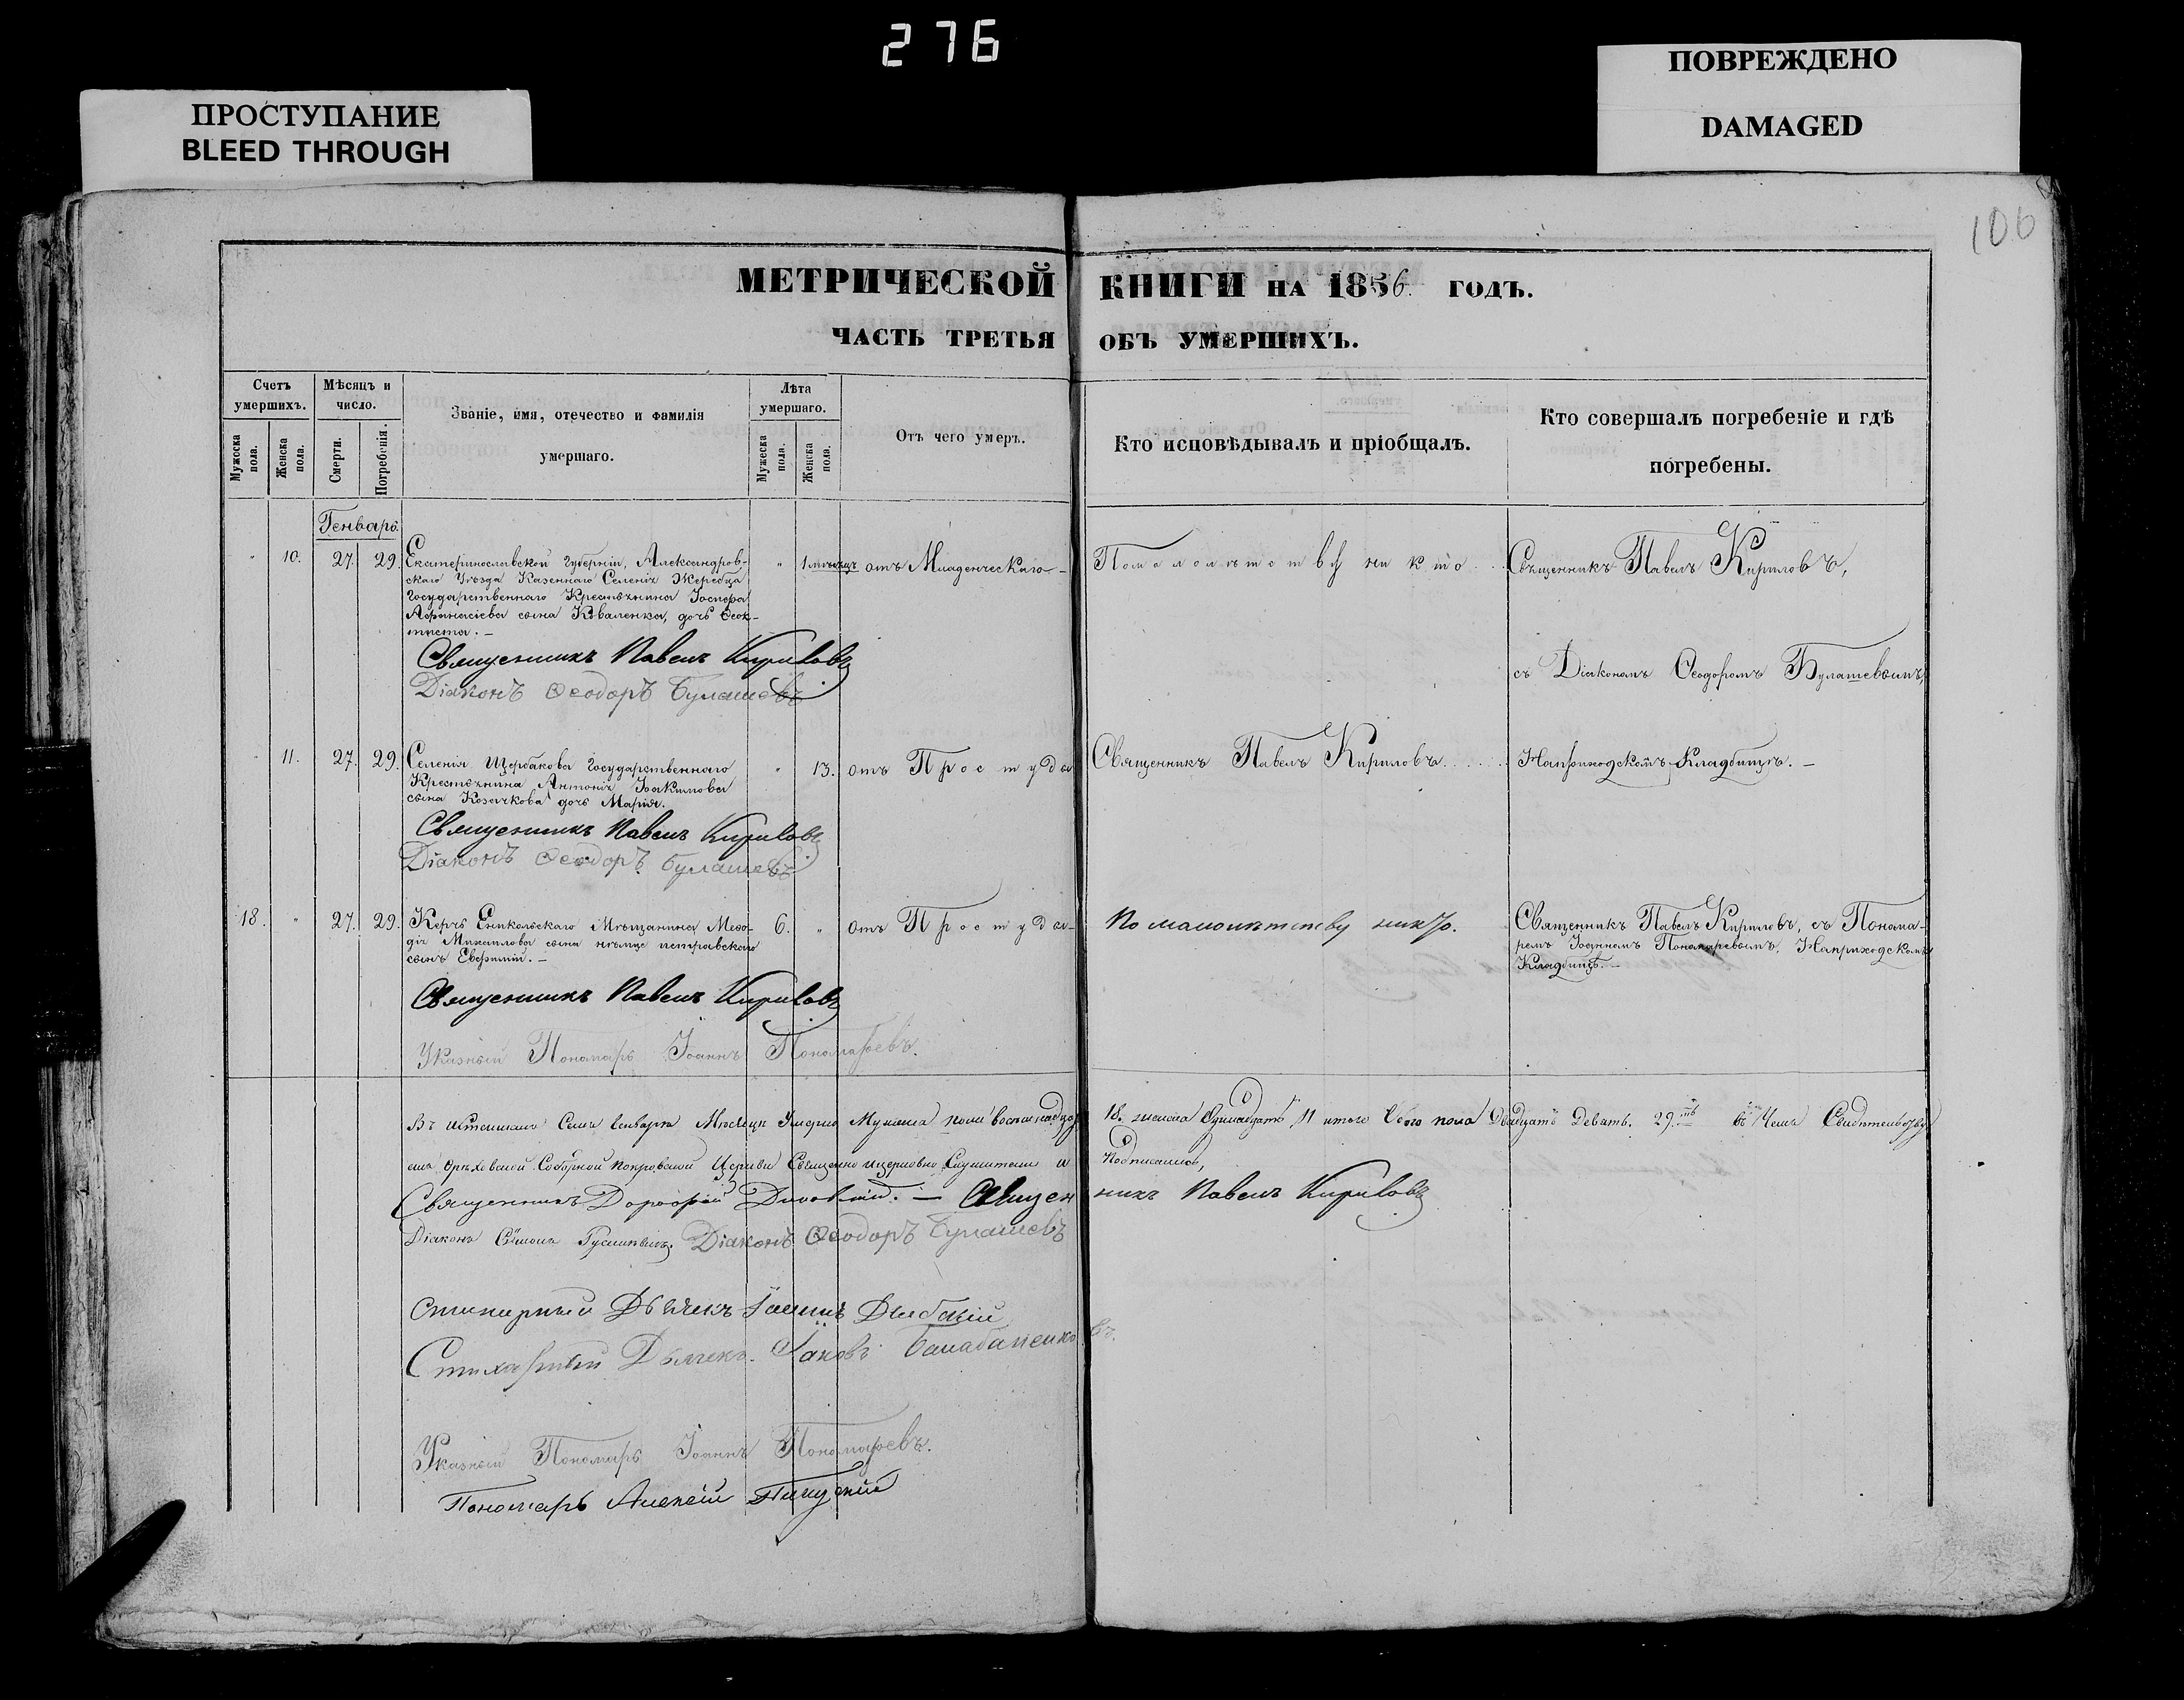 276
ПРОСТУПАНИЕ
BLEED THROUGH
ПОВРЕЖДЕНО
DAMAGED
106
МЕТРИЧЕСКОЙ КНИГИ НА 1856. ГОДЪ.
ЧАСТЬ ТРЕТЬЯ ОБЪ УМЕРШИХЪ.
Счетъ умершихъ.
Мужеска пола.
Женска пола.
Мѣсяцъ и число.
Смерти.
Погребенія.
Званіе, имя, отечество и фамилія
умершаго.
Лѣта умершаго.
Мужеска пола.
Женска пола.
Отъ чего умеръ.
Кто исповѣдывалъ и пріобщалъ.
Кто совершалъ погребеніе и гдѣ
погребены.
Генварь.
" 10. 27. 29.
Екатеринославской Губерніи, Александров-
скаго Уѣзда Казеннаго Селенія Жеребца
Государственнаго Крестьянина Іосифа
Афанасіева сына Коваленка, дочь Ѳеок-
тиста. —
" 1 мѣсяцъ отъ Младенческаго —
По малолѣтству никто
Священникъ Павелъ Кириловъ,
Священникъ Павелъ Кириловъ
Діаконъ Ѳеодоръ Булашевъ
съ Діакономъ Ѳеодоромъ Булашевымъ,
" 11. 27. 29.
Селенія Щербакова Государственнаго
Крестьянина Антонія Іоакимова
сына Козачкова дочь Марія.
" 13. отъ Простуды
Священникъ Павелъ Кириловъ
На приходскомъ Кладбищѣ. —
Священникъ Павелъ Кириловъ
Діаконъ Ѳеодоръ Булашевъ
18. " 27. 29.
Керчь Еникольскаго Мѣщанина Меѳо-
дія Михаилова сына
сынъ Евфимій. —
6. " отъ Простуды —
По малолѣтству никто.
Священникъ Павелъ Кириловъ, съ Понома-
ремъ Іоанномъ Пономаревымъ. На приходскомъ
Кладбищѣ. —
Священникъ Павелъ Кириловъ
Указный Пономарь Іоаннъ Пономаревъ.
Генваря Мѣсяцѣ Умерло Мужеска пола восемнадцать 18. женска Одинадцать 11 итого Обоего пола Двадцать Девять. 29. въ Чемъ
Орѣховской Соборной Покровской Церкви Священно и церковно Служители и Подписались,
Священникъ Дорофей — Священникъ Павелъ Кириловъ
Діаконъ Симонъ Діаконъ Ѳеодоръ Булашевъ
Стихарный Дьячекъ Іоаннъ
Стихарный Дьячекъ Іаковъ Балабаненковъ.
Указный Пономарь Іоаннъ Пономаревъ.
Пономарь Алексій